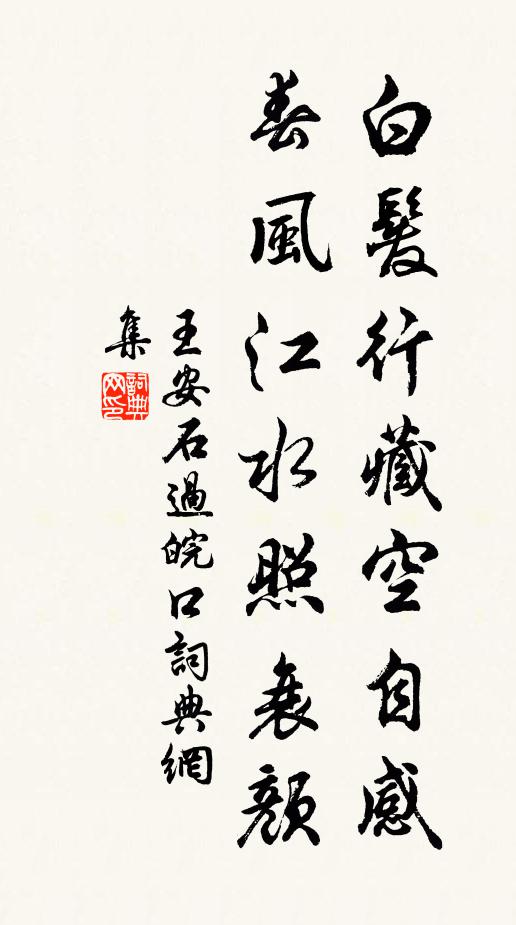 白髮行藏空自感
春風江水照衰顏
王安石過皖口詞典網
集
詞典
网印